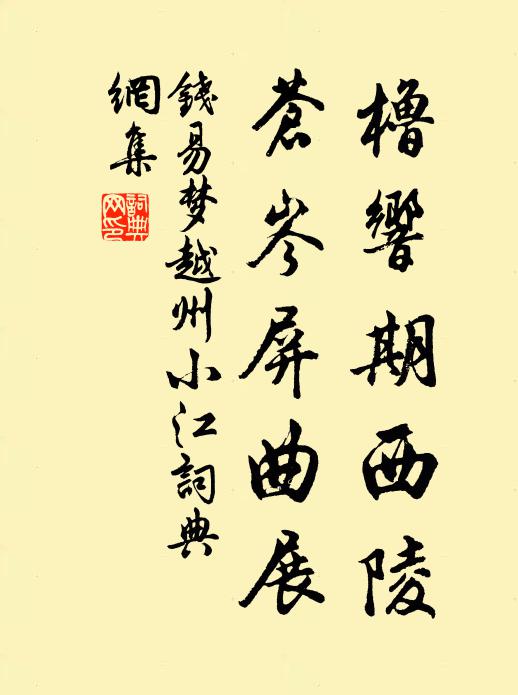 櫓響期西陵
蒼岑屏曲展
錢易梦越州小江詞典
網集
詞典
网印